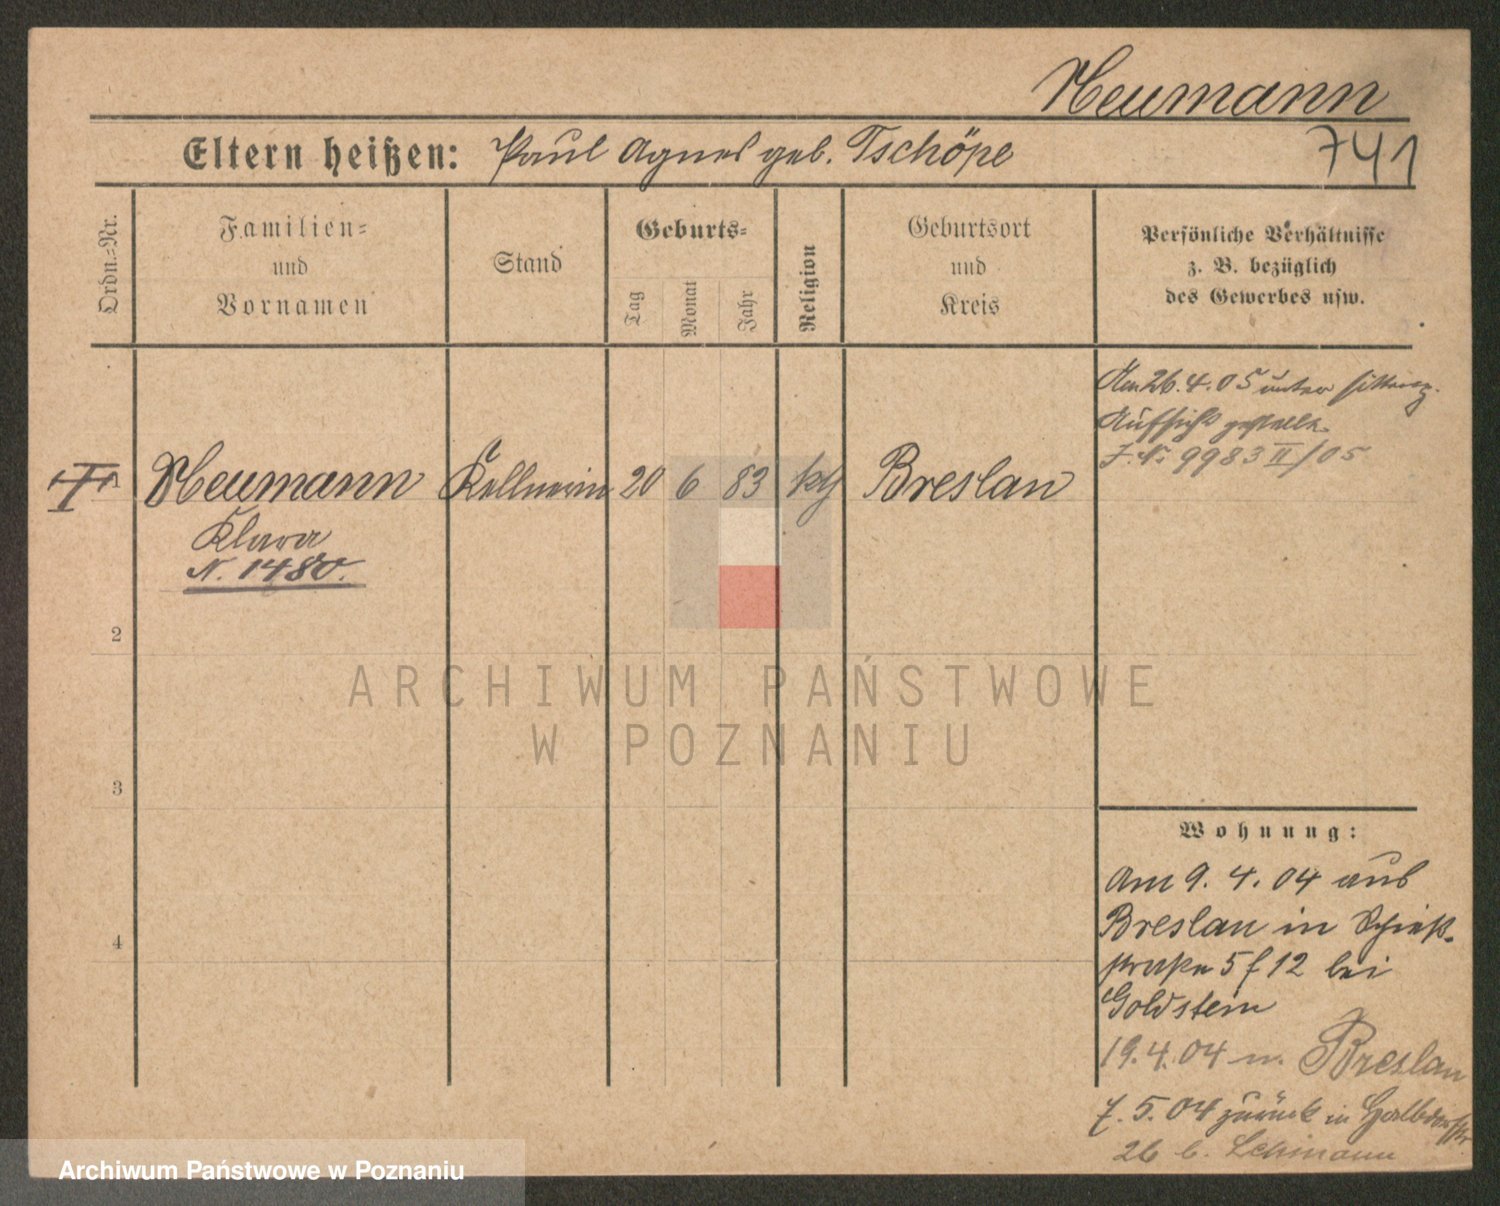 Neumann
Eltern heißen: Paul Agnes geb. Tschöpe
741
Ordn.-Nr.
Familien-
und
Vornamen
Stand
Geburts-
Tag
Monat
Jahr
Religion
Geburtsort
und
Kreis
Persönliche Verhältnisse
z. B. bezüglich
des Gewerbes usw.
Am 26. 4. 05 unter sittenp.
Aufsicht gestellt.
J. Nr. 9983 II/05
Neumann Kellnerin 20 6 83 kth Breslau
Klara
N. 1480.
2
3
4
Wohnung:
Am 9. 4. 04 aus
Breslau in Schieß-
straße 5 f 12 bei
Goldstein
19. 4. 04 n. Breslau
7. 5. 04 zurück in Halbdorfstr
26 b. Lehmann
ARCHIWUM PAŃSTWOWE
W POZNANIU
Archiwum Państwowe w Poznaniu